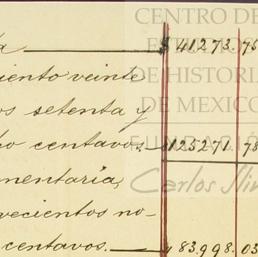 a $ 41273.76
ciento veinte
os setenta y
ho centavos. $125271.78
mentaria,
vecientos no-
centavos. $83.998.03
CENTRO DE
DE HISTORIA
DE MEXICO
FUNDACIÓN
Carlos Slim